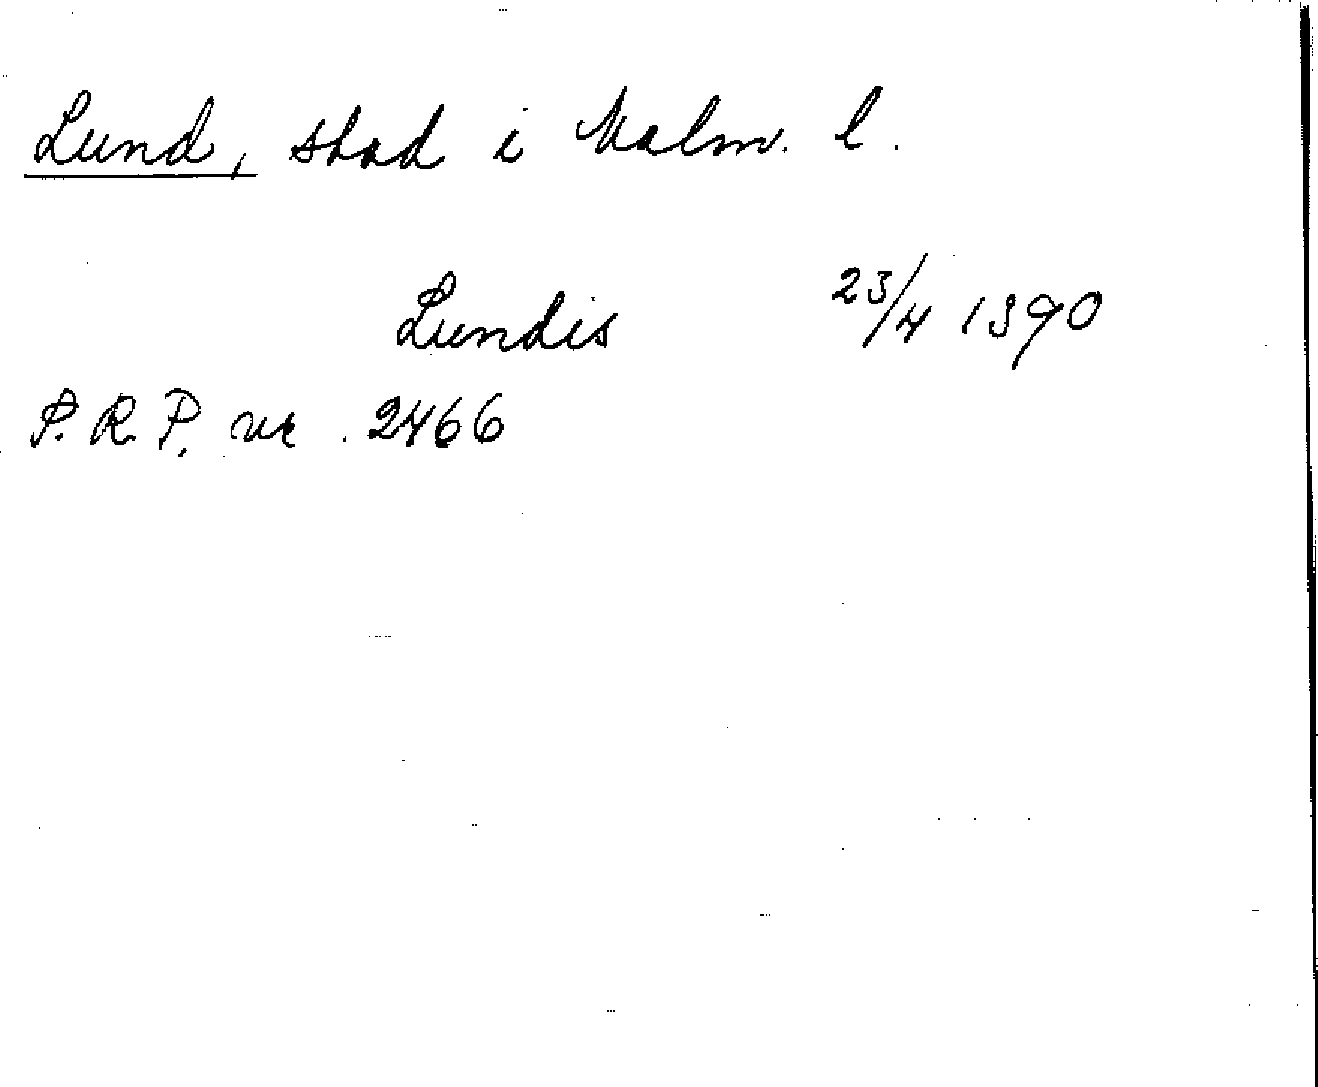 Lund, stad i Malm. l.
Lundis 23/4 1390
P. R. P. nr. 2466